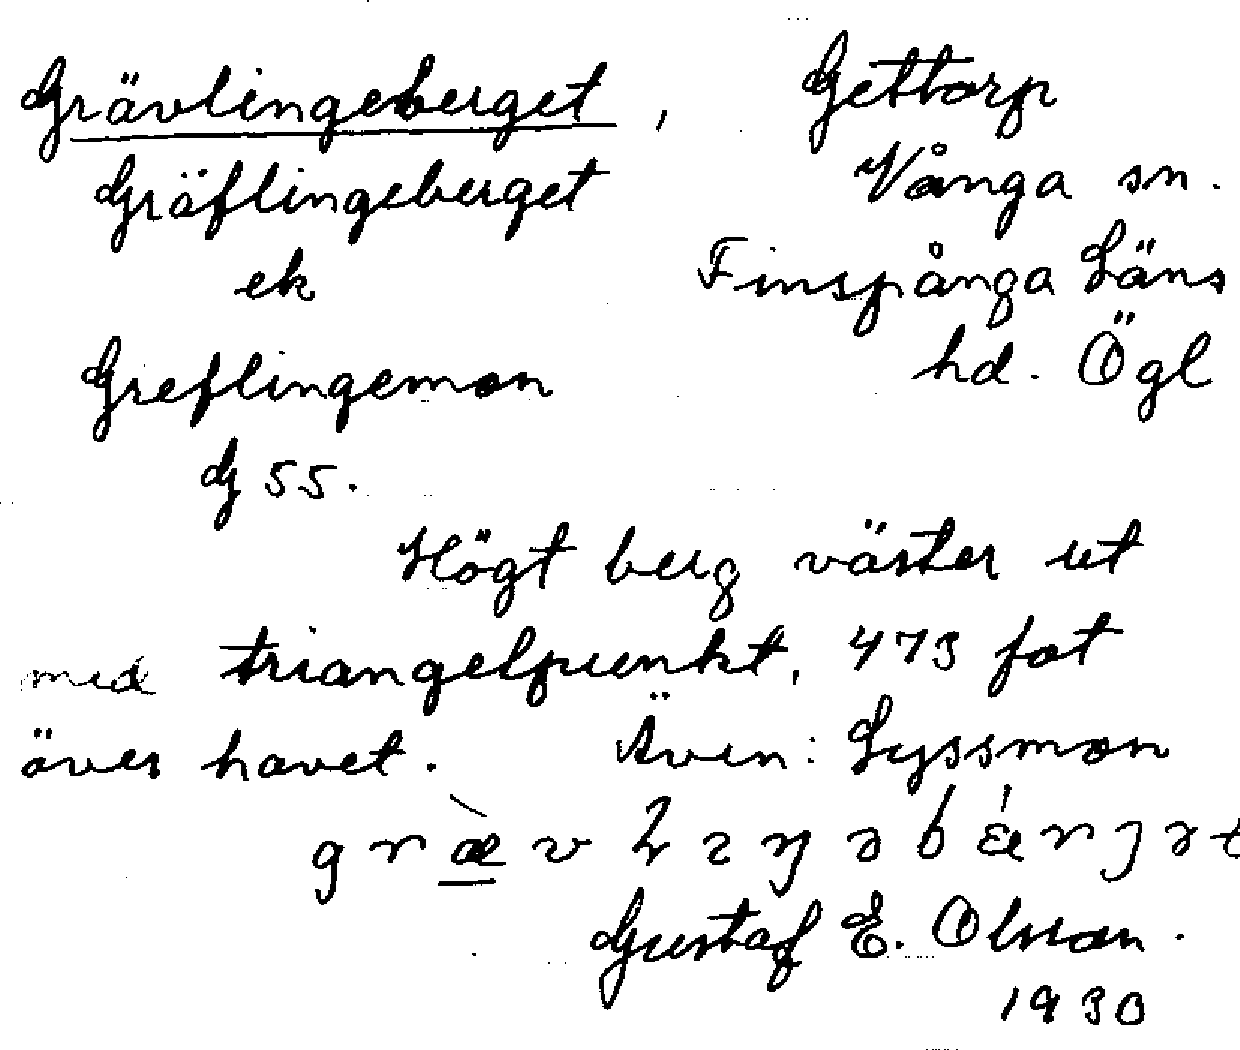 Grävlingeberget, Gettorp
Gräflingeberget Vånga sn.
ek Finspånga Läns
Greflingemon hd. Ögl
Gj 55.
Högt berg väster ut
med triangelpunkt, 473 fot
över havet. Även: Lyssmon
Gustaf E. Olsson.
1930